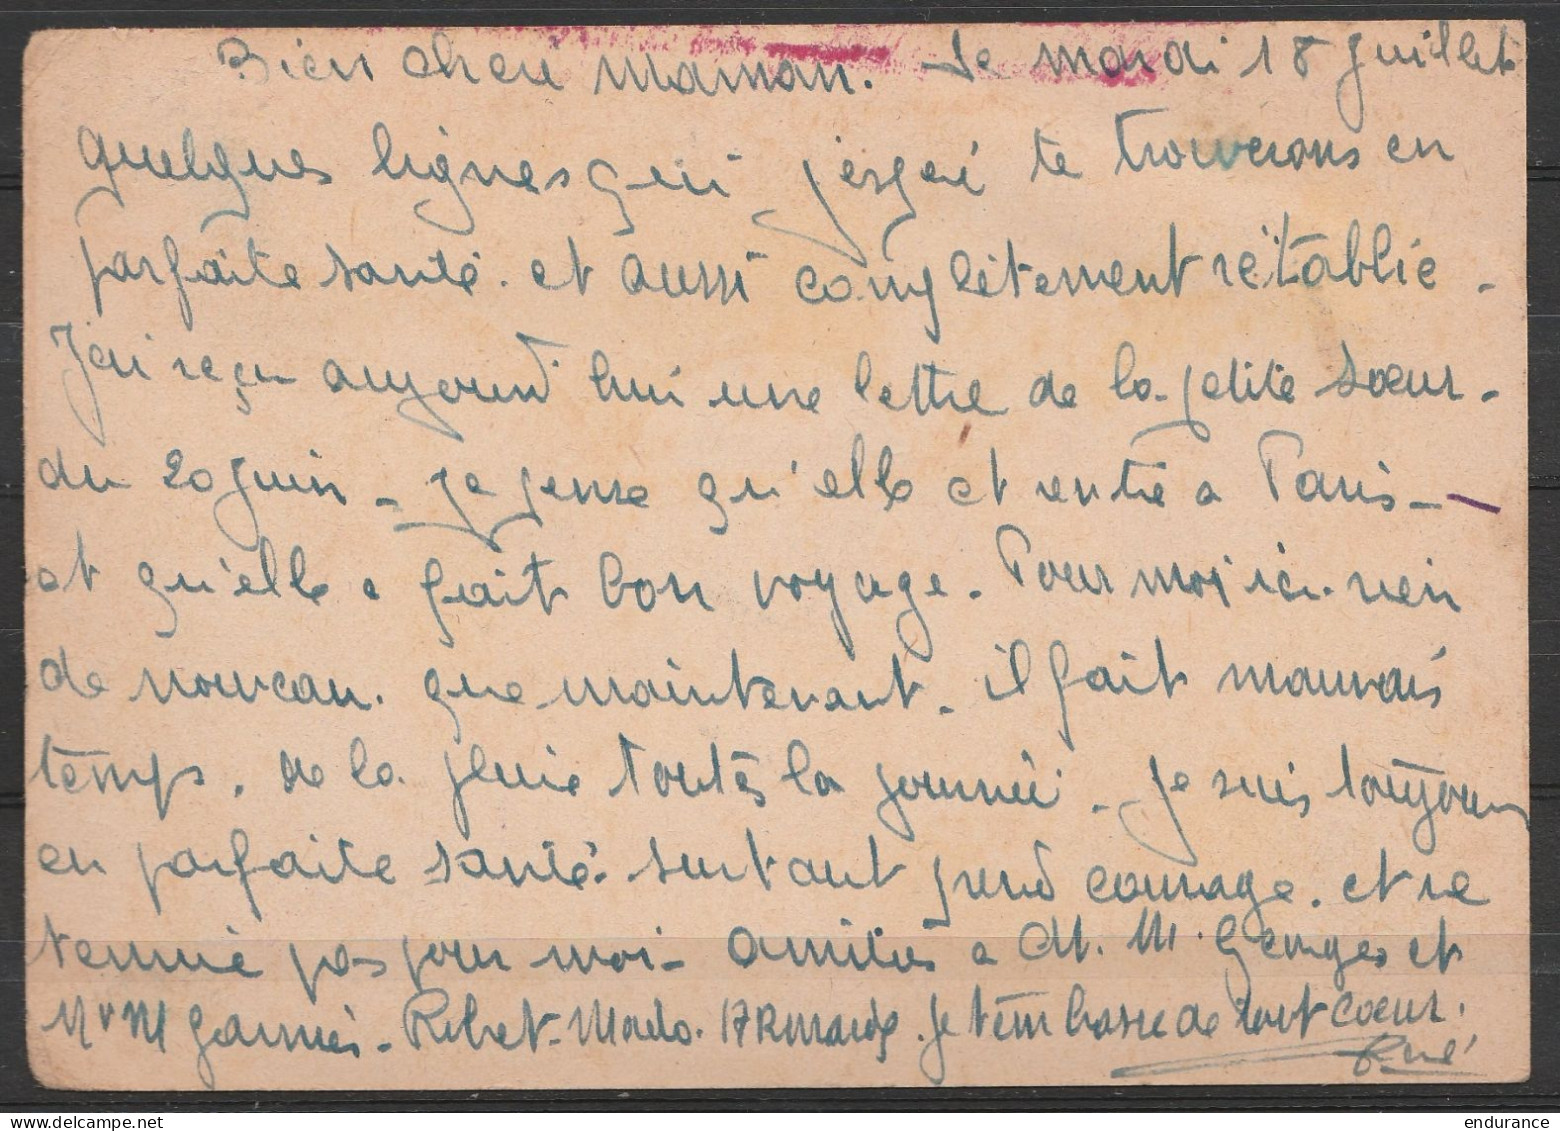 Bien cheu maman. Le mardi 18 juillet
quelques lignes qui j'espei te trouverons en
parfaite santé. et aussi complètement rétablie -
J'ai reçu aujourd'hui une lettre de la petite sœur -
du 20 juin - je pense qu'elle et rentré a Paris -
et qu'elle a fait bon voyage. Pour moi ici rien
de nouveau. que maintenant - il fait mauvais
temps. de la pluie toutes la journéé - je suis toujours
en parfaite santé. surtout prend courage. et ne
t'ennuie pas pour moi - amitiés a M. M. Georges et
Mr M Garnier - Ribet - Mado. Armand. je t'embrasse de tout cœur.
René
endurance